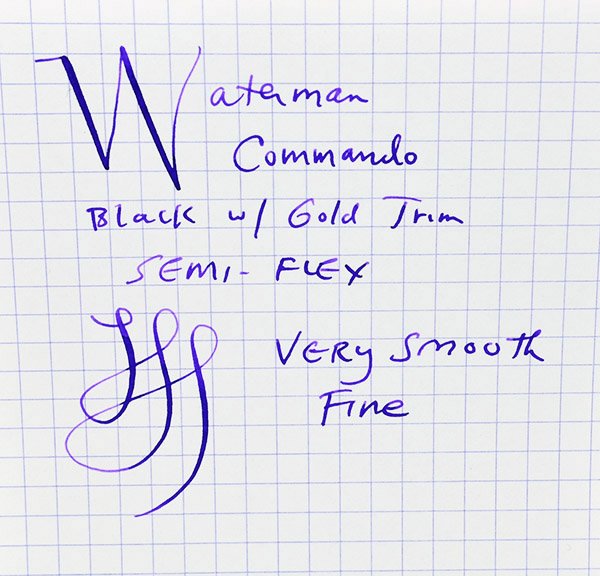 Waterman
Commando
Black w/ Gold Trim
SEMI-FLEX
VERY SMOOTH
FINE